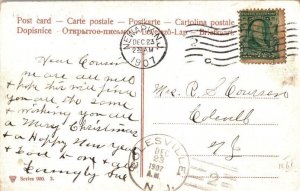 Post card - Carte postale - Postkarte - Cartolina postale
Dopisnice - Открытое письмо - Levelező-Lap - Briefkaart.
NEWARK, N.J.
DEC 23
1907
Dear Cousin
we are all well
& hope this will find
you all the same
wishing you all
a Merry Christmas
& a Happy New year
& Love to one & all
Lovingly Sue
Mrs. R S Courson
Coleville
N J
COLESVILLE
DEC
23
1907
A.M.
N.J.
Series 500.